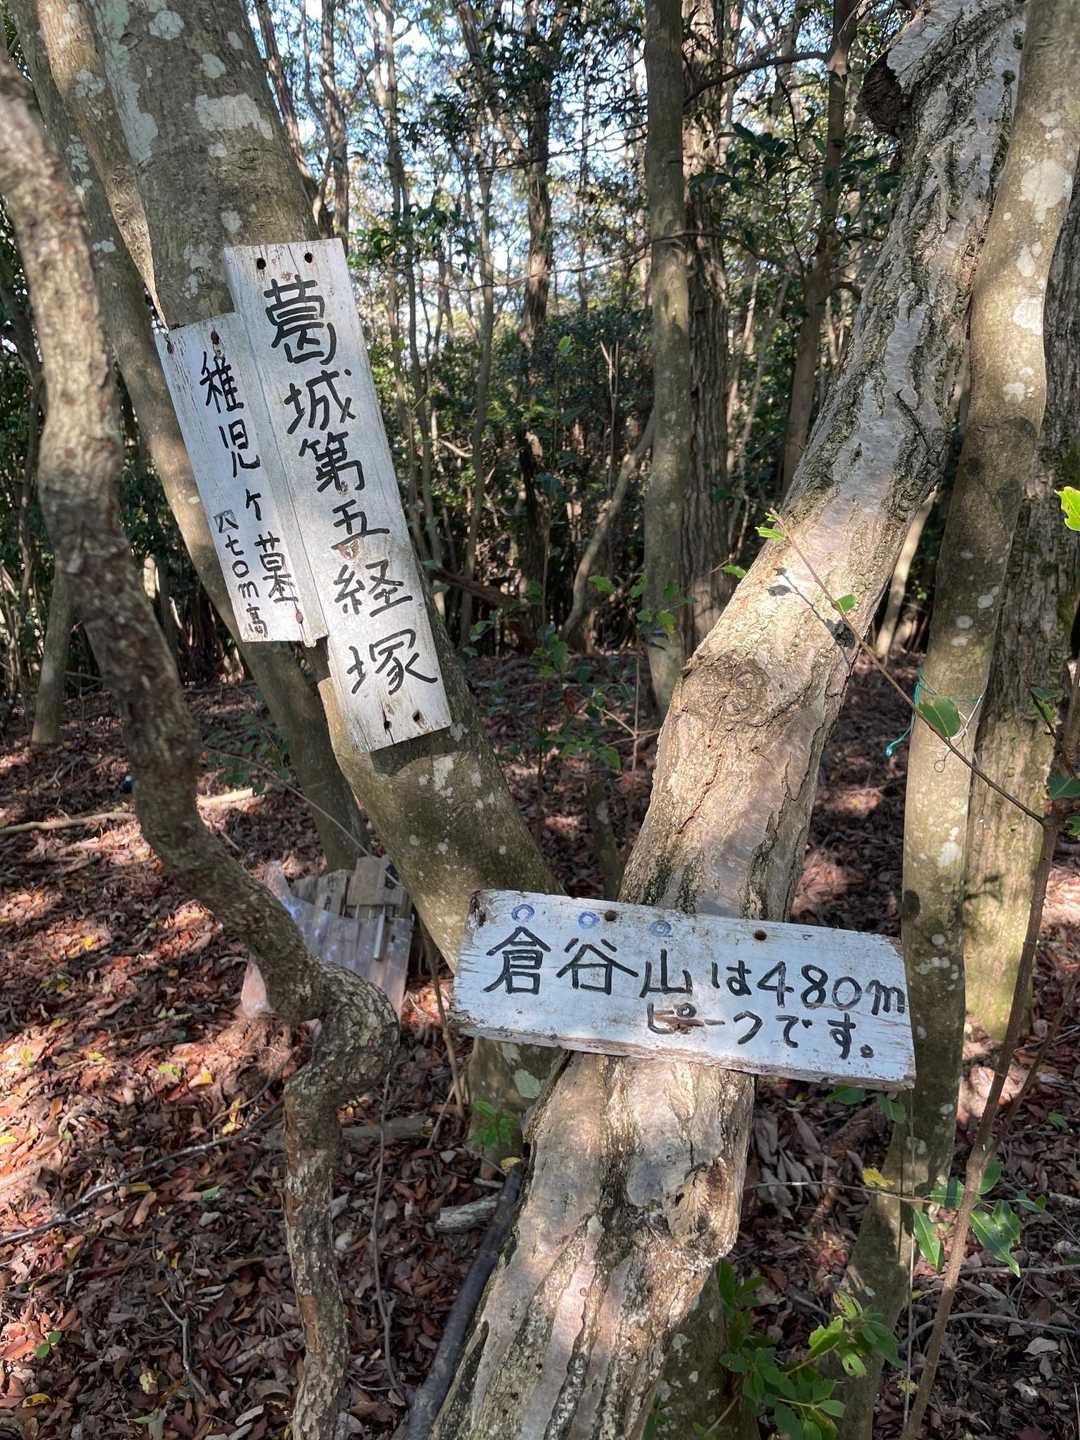 葛城第五経塚
稚児ヶ墓
七〇m高
倉谷山は480m
ピークです。